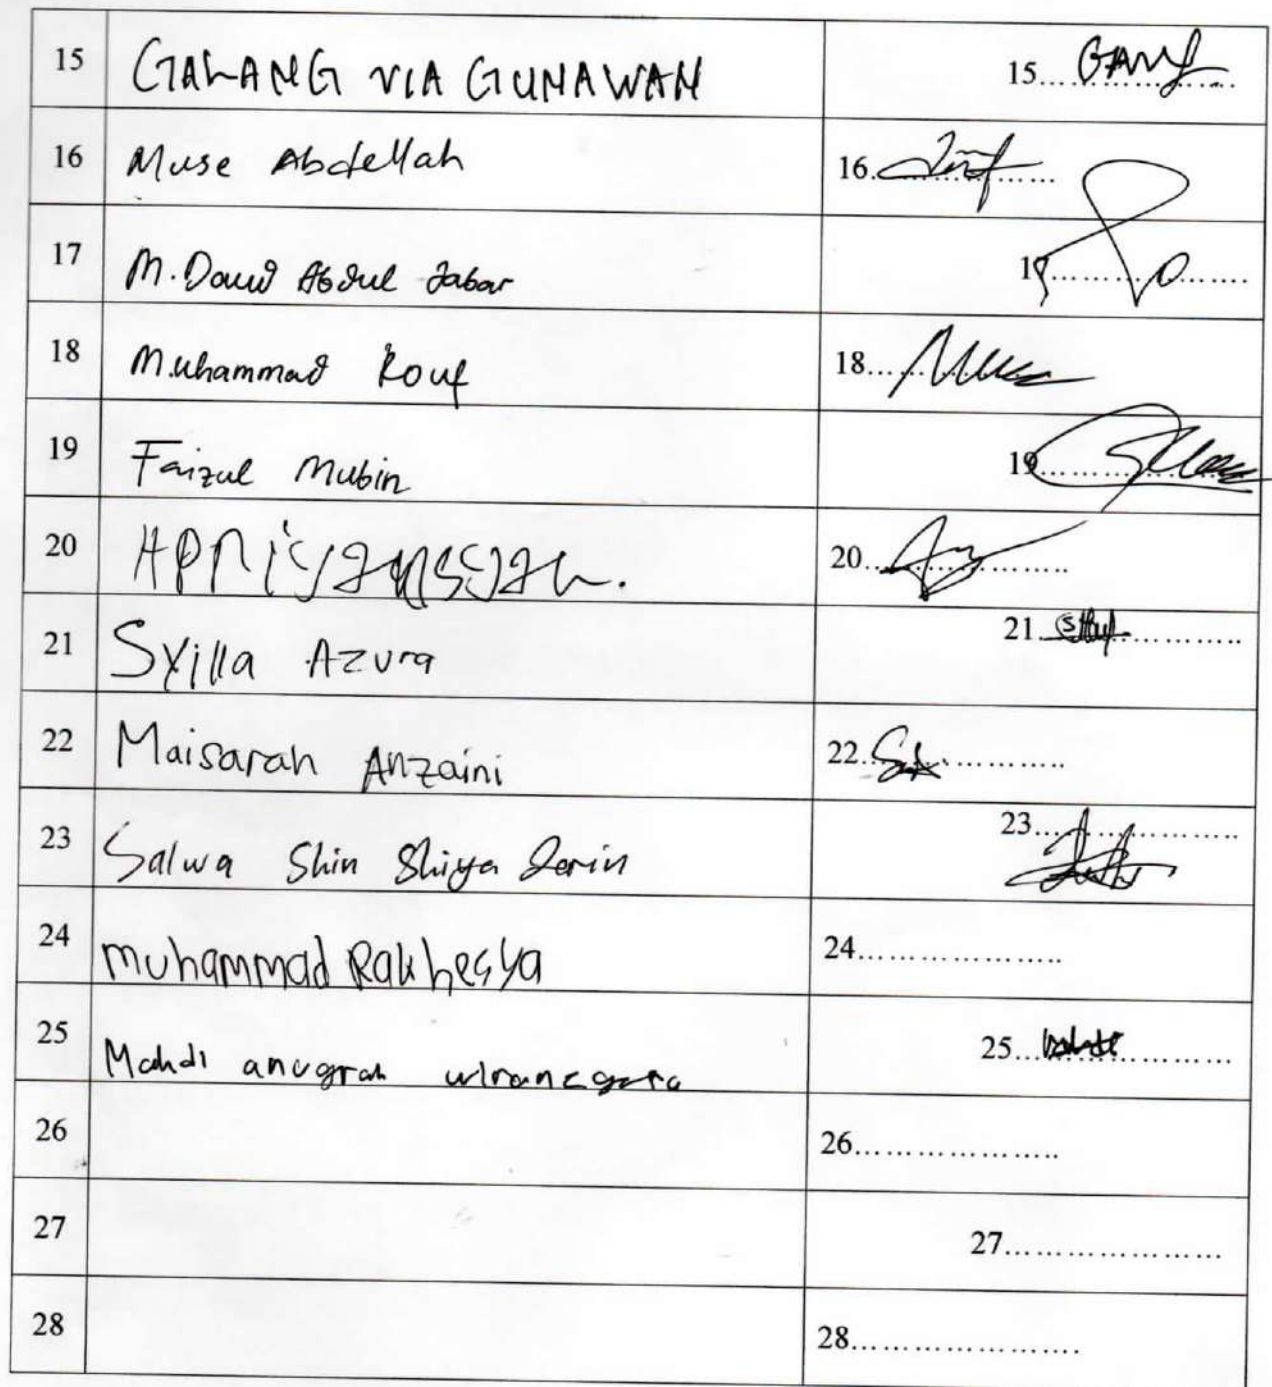 15 GALANG VIA GUNAWAN 15...................
16 Muse Abdellah 16...................
17 M. Daud Abdul Jabar 17...................
18 Muhammad Rouf 18...................
19 Faizul Mubin 19...................
20 20...................
21 Syilla Azura 21...................
22 Maisarah Anzaini 22...................
23 Salwa Shin Shiya 23...................
24 muhammad Rakhesya 24...................
25 Mahdi anugrah wiranegara 25...................
26 26...................
27 27...................
28 28...................